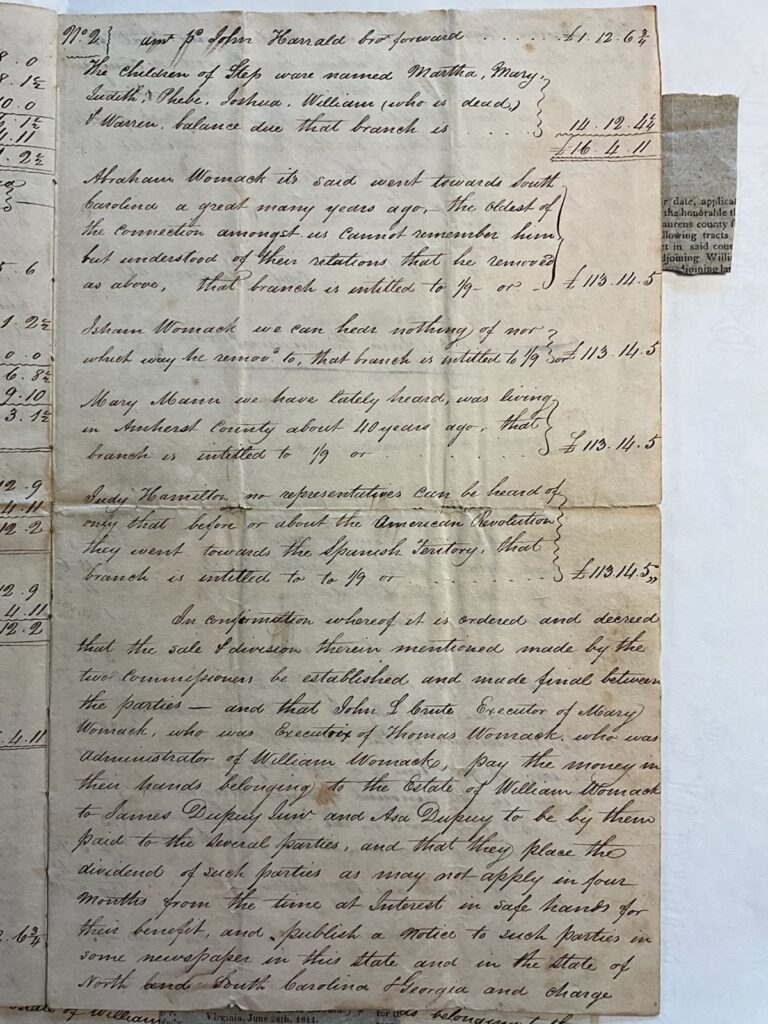 No. 2 } amt pd John Harrald brot forward . . . . . . £1.12.6¾
The children of Step ware named Martha, Mary,
Judith, Phebe, Joshua, William (who is dead,)
& Warren, balance due that branch is . . . . . 14.12.4¼
£16.4.11
Abraham Womack its said went towards South
Carolina a great many years ago, the oldest of
the connection amongst us cannot remember him
but understood of their relations that he removed
as above, that branch is intitled to 1/9 or - £113.14.5
Isham Womack we can hear nothing of nor
which way he removd to, that branch is intitled to 1/9 or £113.14.5
Mary Mann we have lately heard, was living
in Amherst County about 40 years ago, that
branch is intitled to 1/9 or . . . . . . £113.14.5
Judy Hamilton no representatives can be heard of
only that before or about the American Revolution
they went towards the Spanish Teritory, that
branch is intitled to to 1/9 or . . . . . . £113.14.5,,
In confirmation whereof it is ordered and decreed
that the sale & division therein mentioned made by the
two commissioners be established and made final between
the parties — and that John L Crute Executor of Mary
Womack, who was Executrix of Thomas Womack, who was
administrator of William Womacks, pay the money in
their hands belonging to the Estate of William Womack
to James Dupuy Junr. and Asa Dupuy to be by them
paid to the several parties, and that they place the
dividend of such parties as may not apply in four
months from the time at Interest in safe hands for
their benefit, and publish a Notice to such parties in
some newspaper in this state and in the state of
North and South Carolina & Georgia and charge
8.0
8.1½
10.0
5.1½
4.11
1.2½
5.6
1.2½
0.0
6.8½
9.10
3.1½
12.9
4.11
12.2
12.9
4.11
12.2
5.4.11
2.6¾
r date, applica
the honorable th
aurens county f
llowing tracts
et in said coun
djoining Willi
djoining lan
of William
Virginia, June 28th, 1811.
for th
as belonging to the